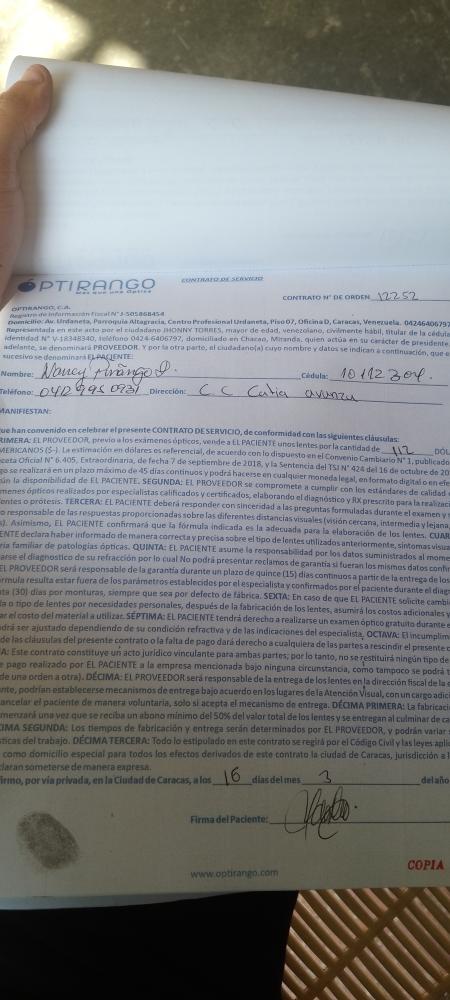 OPTIRANGO
Más que una Óptica
CONTRATO DE SERVICIO
CONTRATO N° DE ORDEN 12252
OPTIRANGO, C.A.
Registro de Información Fiscal N° J-505868454
Domicilio: Av. Urdaneta, Parroquia Altagracia, Centro Profesional Urdaneta, Piso 07, Oficina D, Caracas, Venezuela. 0424640679
Representada en este acto por el ciudadano JHONNY TORRES, mayor de edad, venezolano, civilmente hábil, titular de la cédula
identidad N° V-18348340, teléfono 0424-6406797, domiciliado en Chacao, Miranda, quien actúa en su carácter de presidente
adelante, se denominará PROVEEDOR. Y por la otra parte, el ciudadano(a) cuyo nombre y datos se indican a continuación, que e
sucesivo se denominará EL PACIENTE:
Nombre: Nancy Arango P. Cédula: 10112304.
Teléfono: 0412 995 0731 Dirección: C C Catia avanza
MANIFIESTAN:
ue han convenido en celebrar el presente CONTRATO DE SERVICIO, de conformidad con las siguientes cláusulas:
RIMERA: EL PROVEEDOR, previo a los exámenes ópticos, vende a EL PACIENTE unos lentes por la cantidad de 112 DÓL
MERICANOS ($-). La estimación en dólares es referencial, de acuerdo con lo dispuesto en el Convenio Cambiario N° 1, publicado
ceta Oficial N° 6.405, Extraordinaria, de fecha 7 de septiembre de 2018, y la Sentencia del TSJ N° 424 del 16 de octubre de 20
go se realizará en un plazo máximo de 45 días continuos y podrá hacerse en cualquier moneda legal, en formato digital o en efe
ún la disponibilidad de EL PACIENTE. SEGUNDA: EL PROVEEDOR se compromete a cumplir con los estándares de calidad
menes ópticos realizados por especialistas calificados y certificados, elaborando el diagnóstico y RX prescrito para la realizaci
lentes o prótesis. TERCERA: EL PACIENTE deberá responder con sinceridad a las preguntas formuladas durante el examen y
o responsable de las respuestas proporcionadas sobre las diferentes distancias visuales (visión cercana, intermedia y lejana,
s). Asimismo, EL PACIENTE confirmará que la fórmula indicada es la adecuada para la elaboración de los lentes. CUAR
ENTE declara haber informado de manera correcta y precisa sobre el tipo de lentes utilizados anteriormente, síntomas visua
ria familiar de patologías ópticas. QUINTA: EL PACIENTE asume la responsabilidad por los datos suministrados al mom
arse el diagnostico de su refracción por lo cual No podrá presentar reclamos de garantía si fueran los mismos datos confir
EL PROVEEDOR será responsable de la garantía durante un plazo de quince (15) días continuos a partir de la entrega de los
rmula resulta estar fuera de los parámetros establecidos por el especialista y confirmados por el paciente durante el diag
ta (30) días por monturas, siempre que sea por defecto de fábrica. SEXTA: En caso de que EL PACIENTE solicite cambi
la o tipo de lentes por necesidades personales, después de la fabricación de los lentes, asumirá los costos adicionales y
ar el costo del material a utilizar. SÉPTIMA: EL PACIENTE tendrá derecho a realizarse un examen óptico gratuito durante e
drá ser ajustado dependiendo de su condición refractiva y de las indicaciones del especialista. OCTAVA: El incumplim
de las cláusulas del presente contrato o la falta de pago dará derecho a cualquiera de las partes a rescindir el presente c
A: Este contrato constituye un acto jurídico vinculante para ambas partes; por lo tanto, no se restituirá ningún tipo de
e pago realizado por EL PACIENTE a la empresa mencionada bajo ninguna circunstancia, como tampoco se podrá t
de una orden a otra). DÉCIMA: EL PROVEEDOR será responsable de la entrega de los lentes en la dirección fiscal de la e
nte, podrían establecerse mecanismos de entrega bajo acuerdo en los lugares de la Atención Visual, con un cargo adic
ancelar el paciente de manera voluntaria, solo si acepta el mecanismo de entrega. DÉCIMA PRIMERA: La fabricació
menzará una vez que se reciba un abono mínimo del 50% del valor total de los lentes y se entregan al culminar de ca
IMA SEGUNDA: Los tiempos de fabricación y entrega serán determinados por EL PROVEEDOR, y podrán variar
sticas del trabajo. DÉCIMA TERCERA: Todo lo estipulado en este contrato se regirá por el Código Civil y las leyes aplic
como domicilio especial para todos los efectos derivados de este contrato la ciudad de Caracas, jurisdicción a l
claran someterse de manera expresa.
firmo, por vía privada, en la Ciudad de Caracas, a los 16 días del mes 3 del año
Firma del Paciente:
www.optirango.com
COPIA